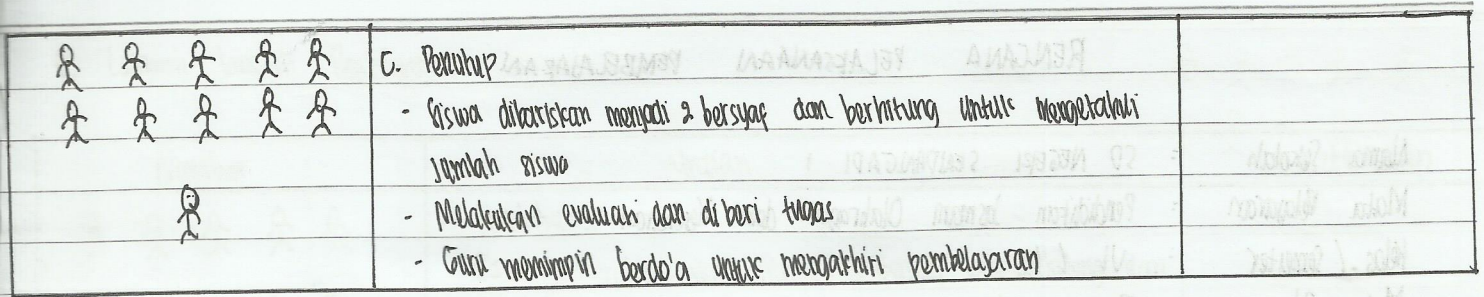 C. Penutup
- Siswa dibariskan menjadi 2 bersyaf dan berhitung untuk mengetahui
jumlah siswa
- Melakukan evaluasi dan diberi tugas
- Guru memimpin berdo'a untuk mengakhiri pembelajaran